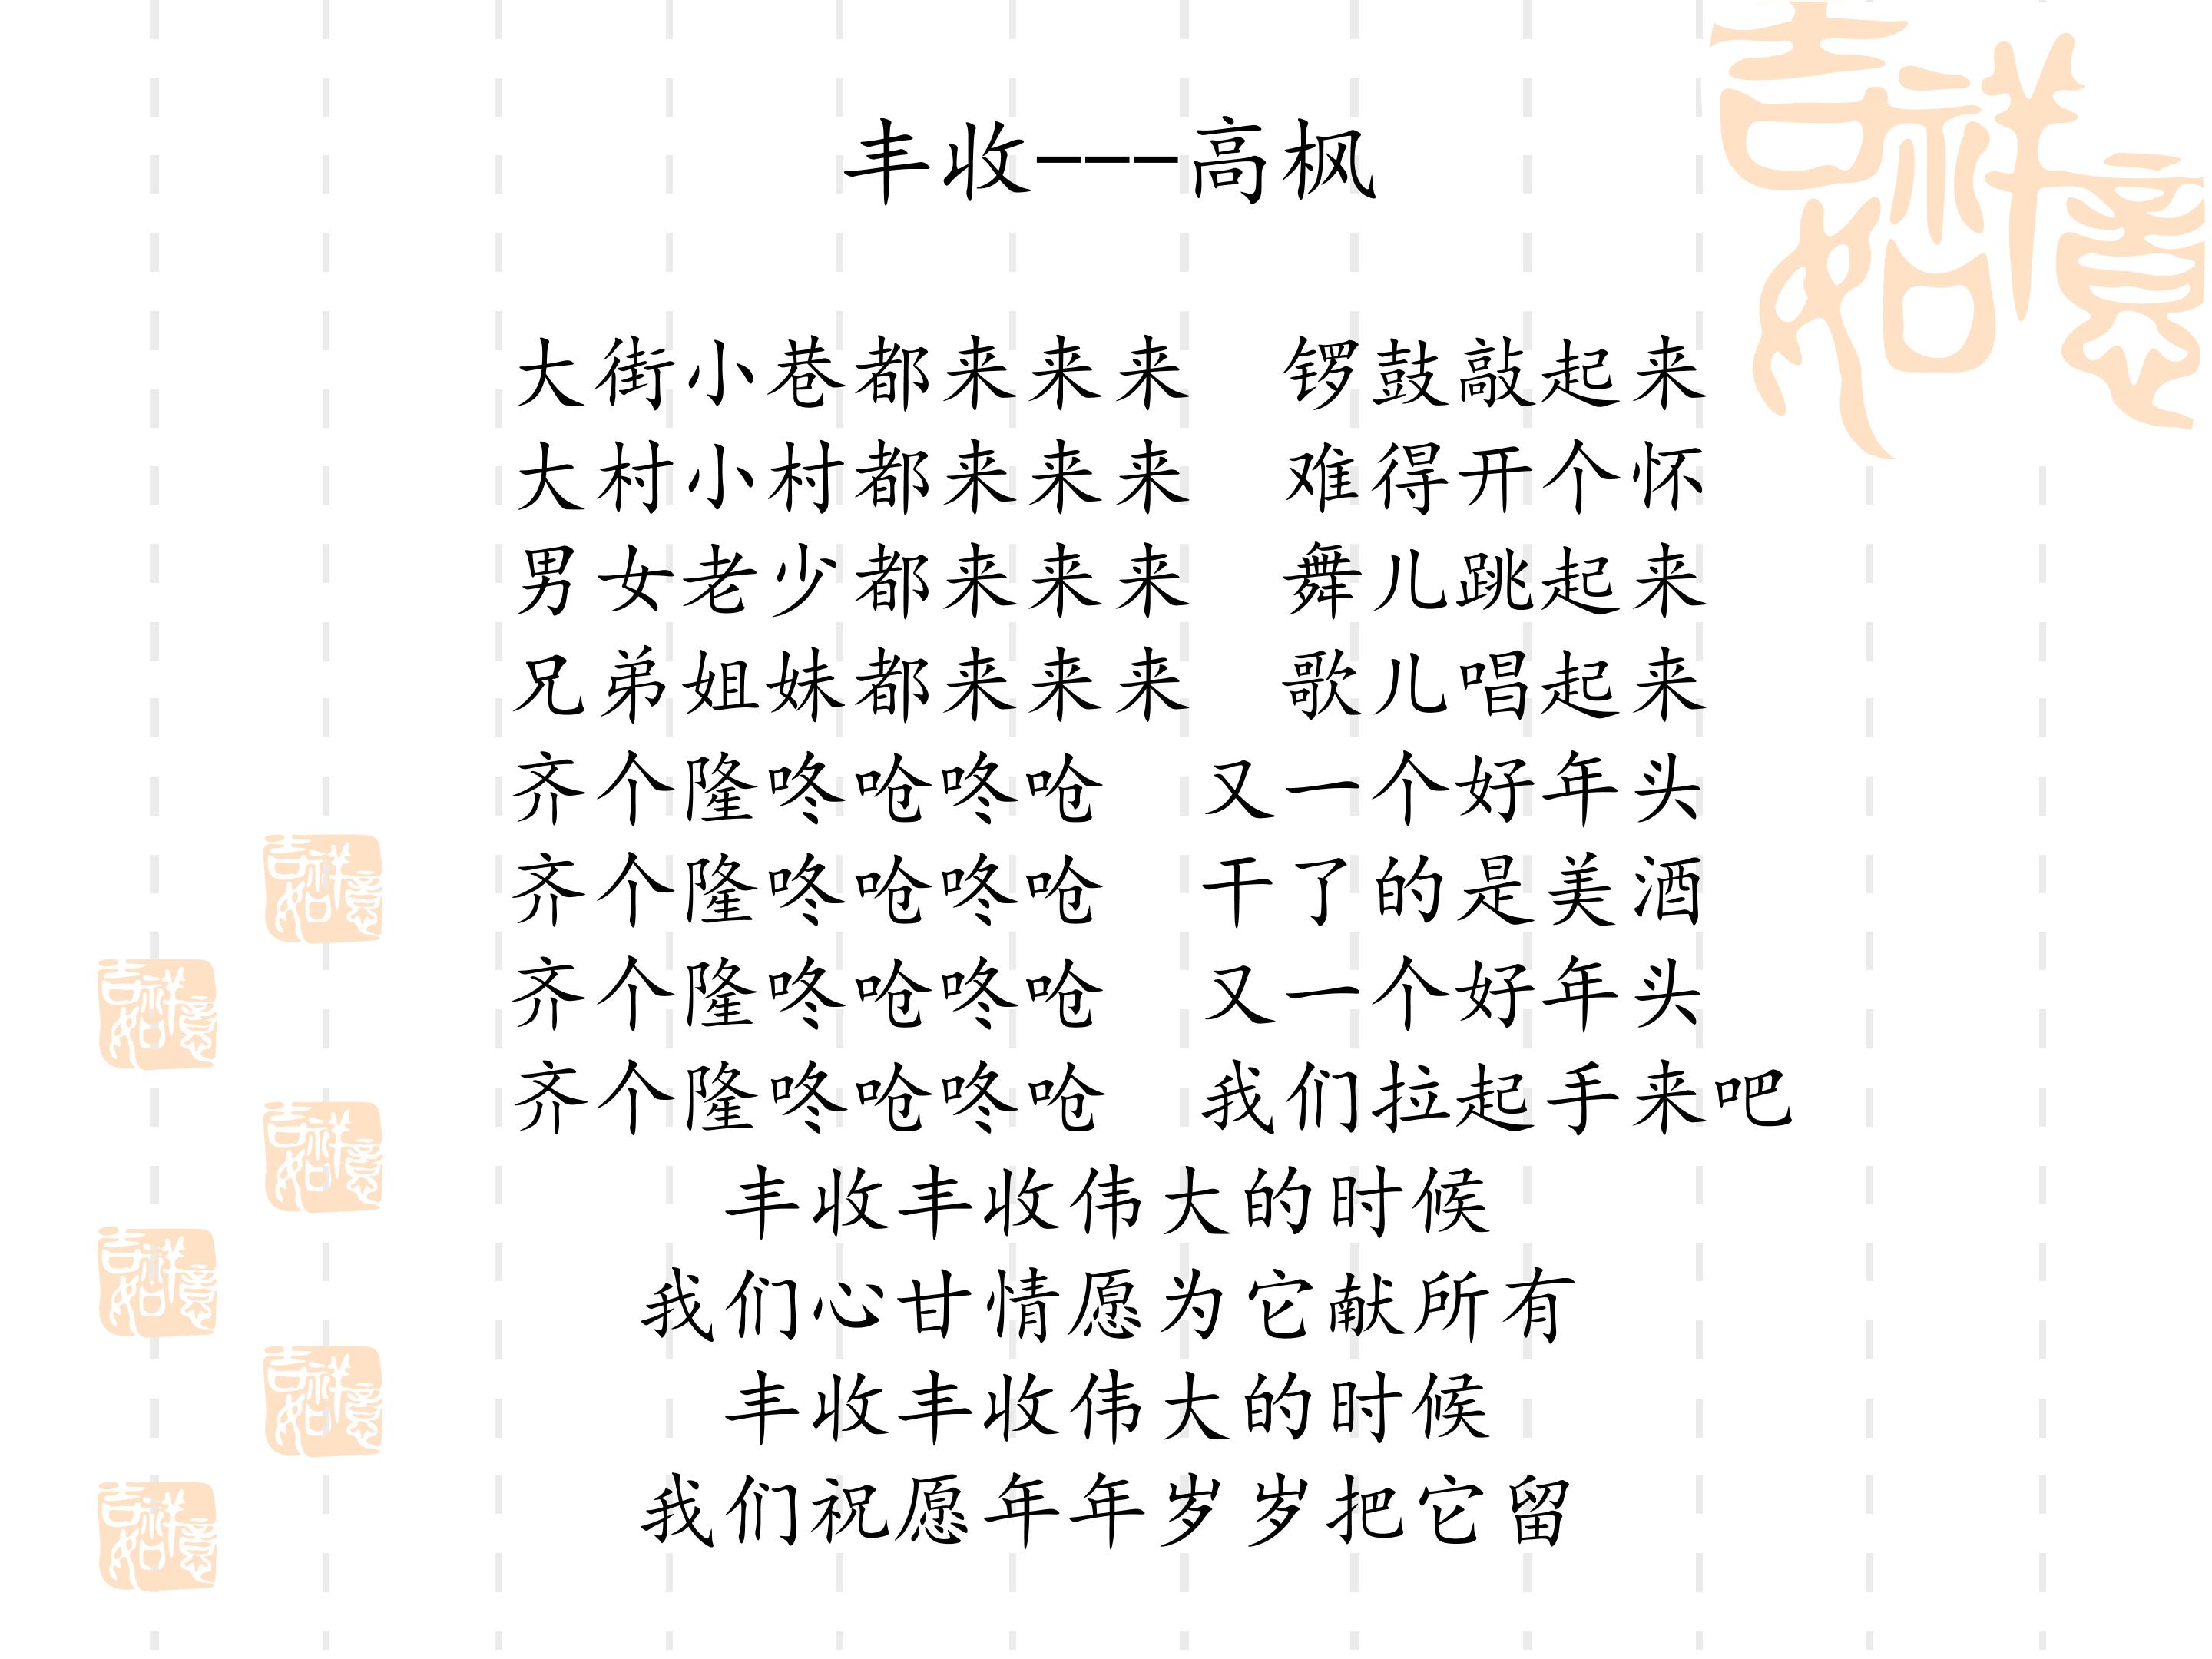 丰收---高枫
大街小巷都来来来 锣鼓敲起来
大村小村都来来来 难得开个怀
男女老少都来来来 舞儿跳起来
兄弟姐妹都来来来 歌儿唱起来
齐个隆咚呛咚呛 又一个好年头
齐个隆咚呛咚呛 干了的是美酒
齐个隆咚呛咚呛 又一个好年头
齐个隆咚呛咚呛 我们拉起手来吧
丰收丰收伟大的时候
我们心甘情愿为它献所有
丰收丰收伟大的时候
我们祝愿年年岁岁把它留
吉祥如意